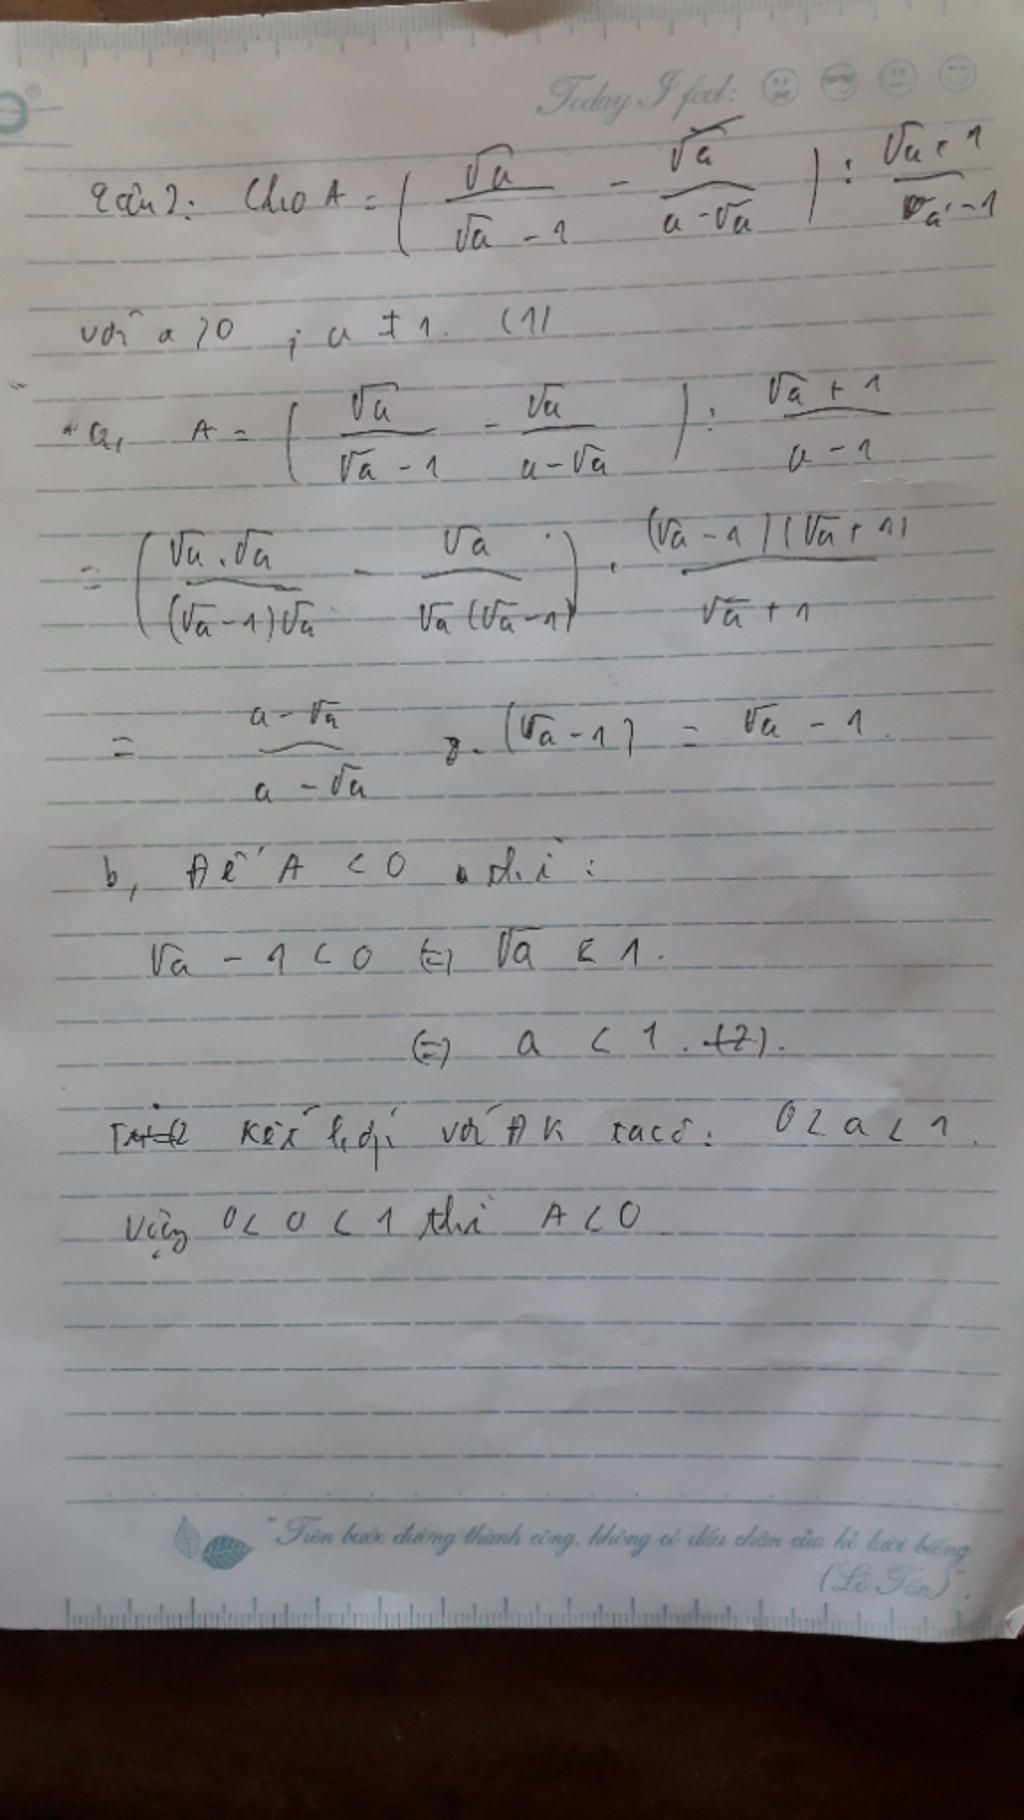 Today I feel:
Câu 2: Cho A = ( √a / (√a - 1) - √a / (a - √a) ) : (√a + 1) / (a - 1)
với a > 0 ; a ≠ 1. (1)
a, A = ( √a / (√a - 1) - √a / (a - √a) ) : (√a + 1) / (a - 1)
= ( √a . √a / (√a - 1)√a - √a / √a(√a - 1) ) . (√a - 1)(√a + 1) / (√a + 1)
= (a - √a) / (a - √a) . (√a - 1) = √a - 1.
b, Để A < 0 thì :
√a - 1 < 0 (=) √a < 1.
(=) a < 1. (2).
Kết hợp với ĐK ta có : 0 < a < 1.
Vậy 0 < a < 1 thì A < 0
"Trên bước đường thành công, không có dấu chân của kẻ lười biếng
(Lỗ Tấn)".